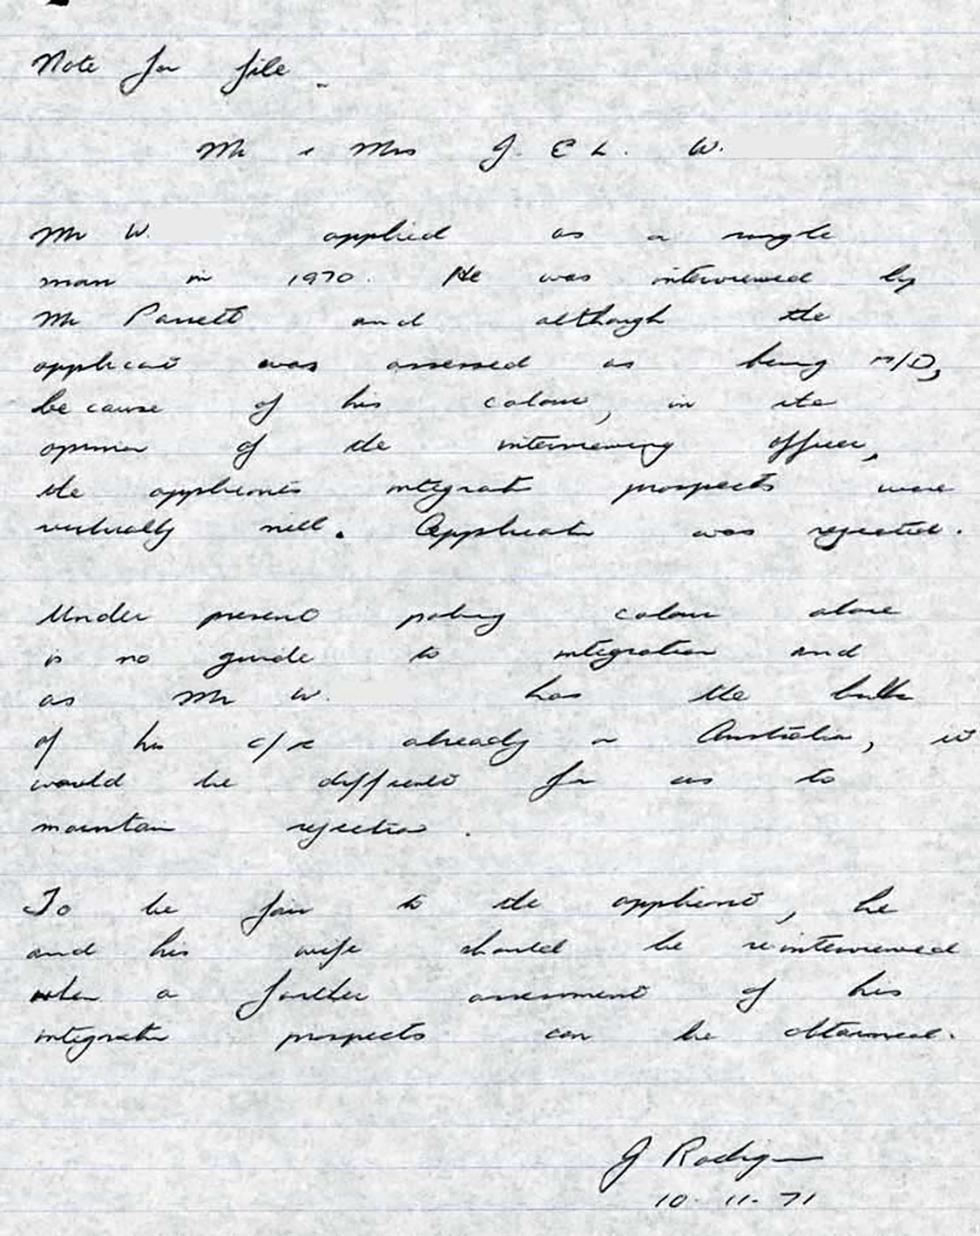 Note for file.
Mr & Mrs J. E L. W.
Mr W. applied as a single
man in 1970. He was interviewed by
Mr Parrett and although the
applicant was assessed as being
because of his colour, in the
opinion of the interviewing officer,
the applicants integration prospects were
virtually nill. Application was rejected.
Under present policy colour alone
is no guide to integration and
as Mr W. has the bulk
of his already in Australia, it
would be difficult for us to
maintain rejection.
To be fair to the applicant, he
and his wife should be reinterviewed
when a further assessment of his
integration prospects can be obtained.
J
10-11-71